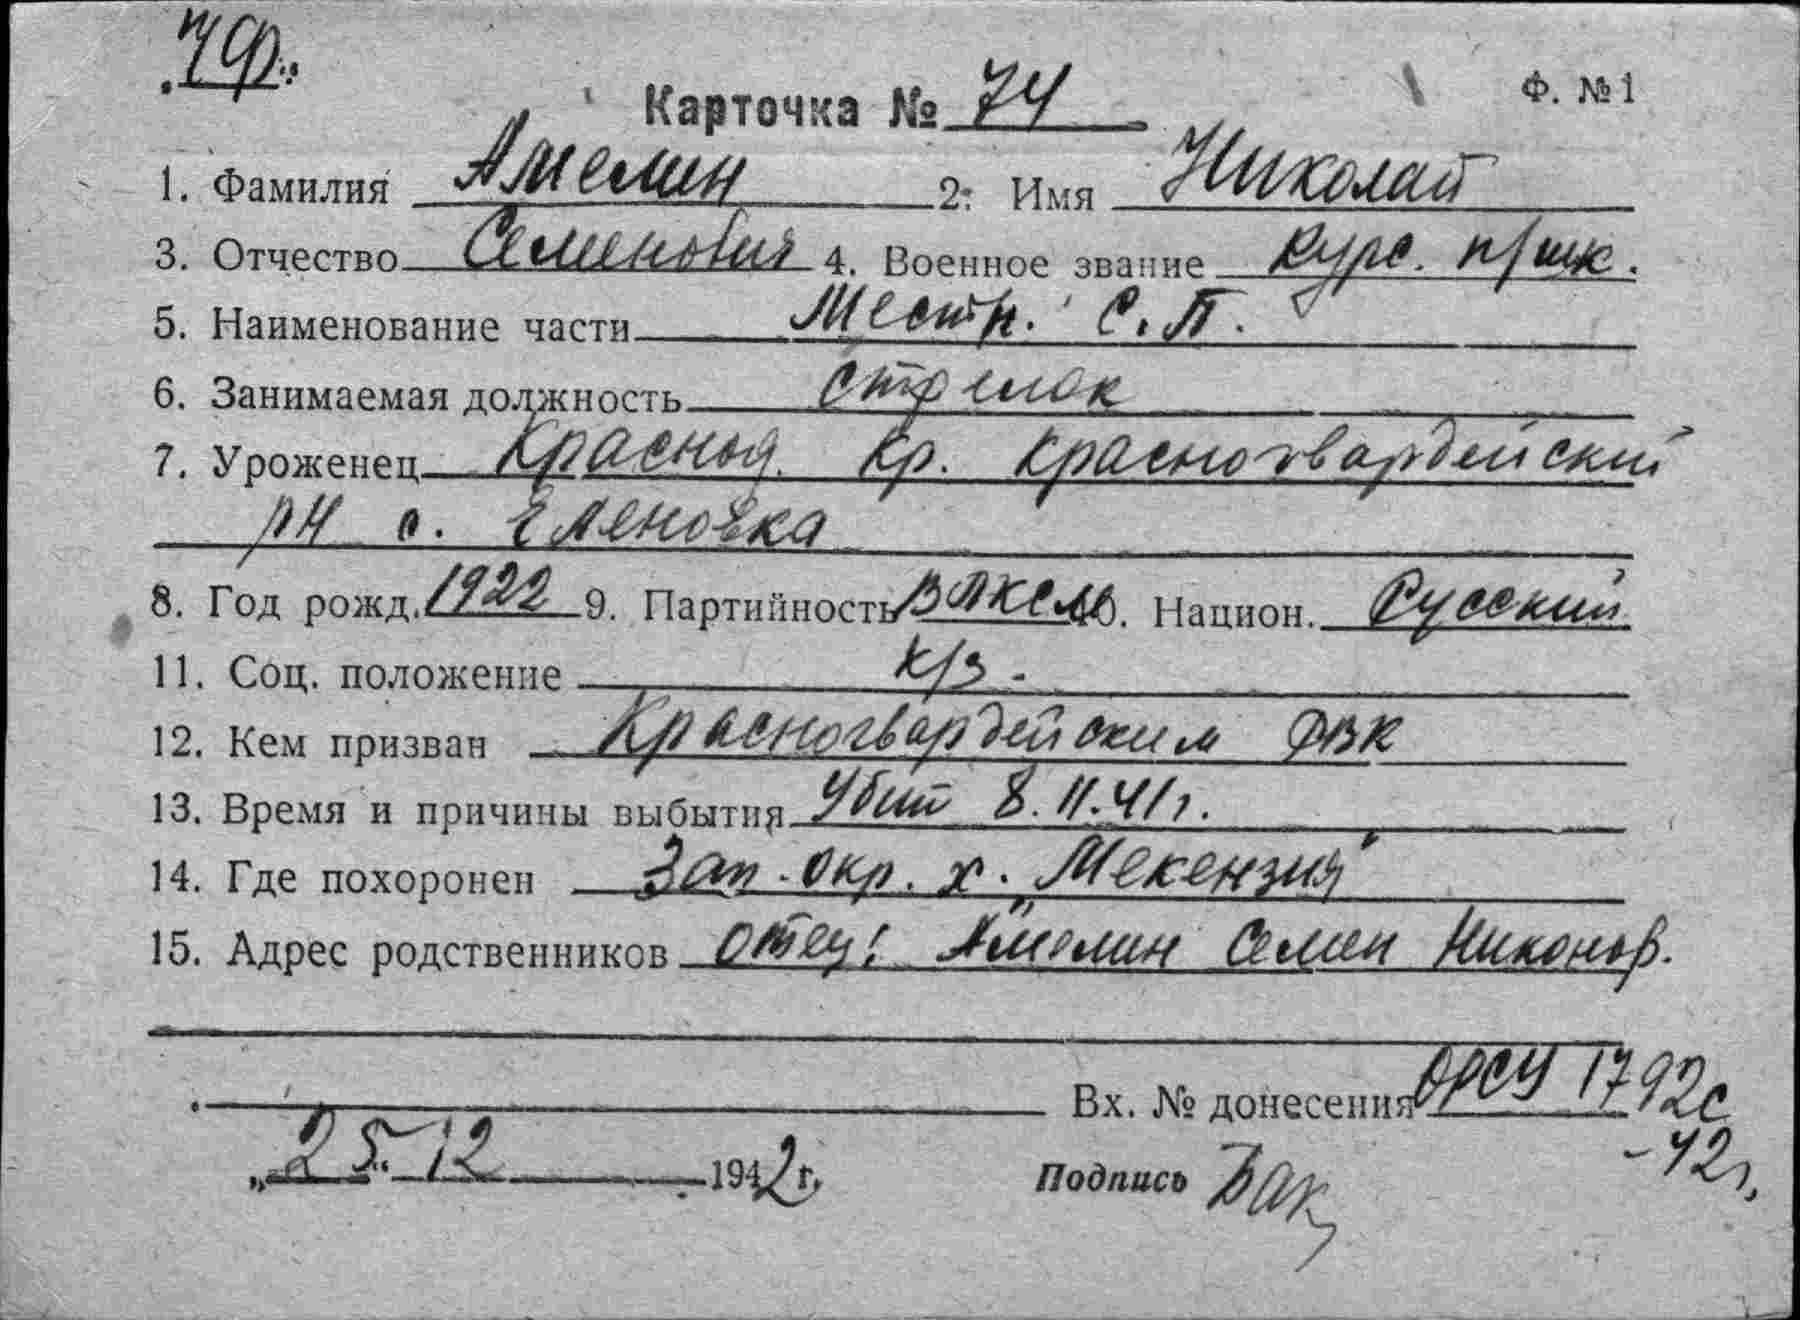 ЧФ.
Карточка № 74 Ф. №1
1. Фамилия Амелин 2. Имя Николай
3. Отчество Семенович 4. Военное звание курс. п/шк.
5. Наименование части Местн. С.П.
6. Занимаемая должность стрелок
7. Уроженец Краснод. кр. Красногвардейский
рн с. Еленовка
8. Год рожд. 1922 9. Партийность ВЛКСМ 10. Национ. Русский
11. Соц. положение к/з.
12. Кем призван Красногвардейским РВК
13. Время и причины выбытия Убит 8.11.41г.
14. Где похоронен Зап. окр. х. „Мекензия"
15. Адрес родственников отец: Амелин Семен Никонор.
Вх. № донесения ОРСУ 1792с
-42г.
„25" 12 1942 г. Подпись Бак